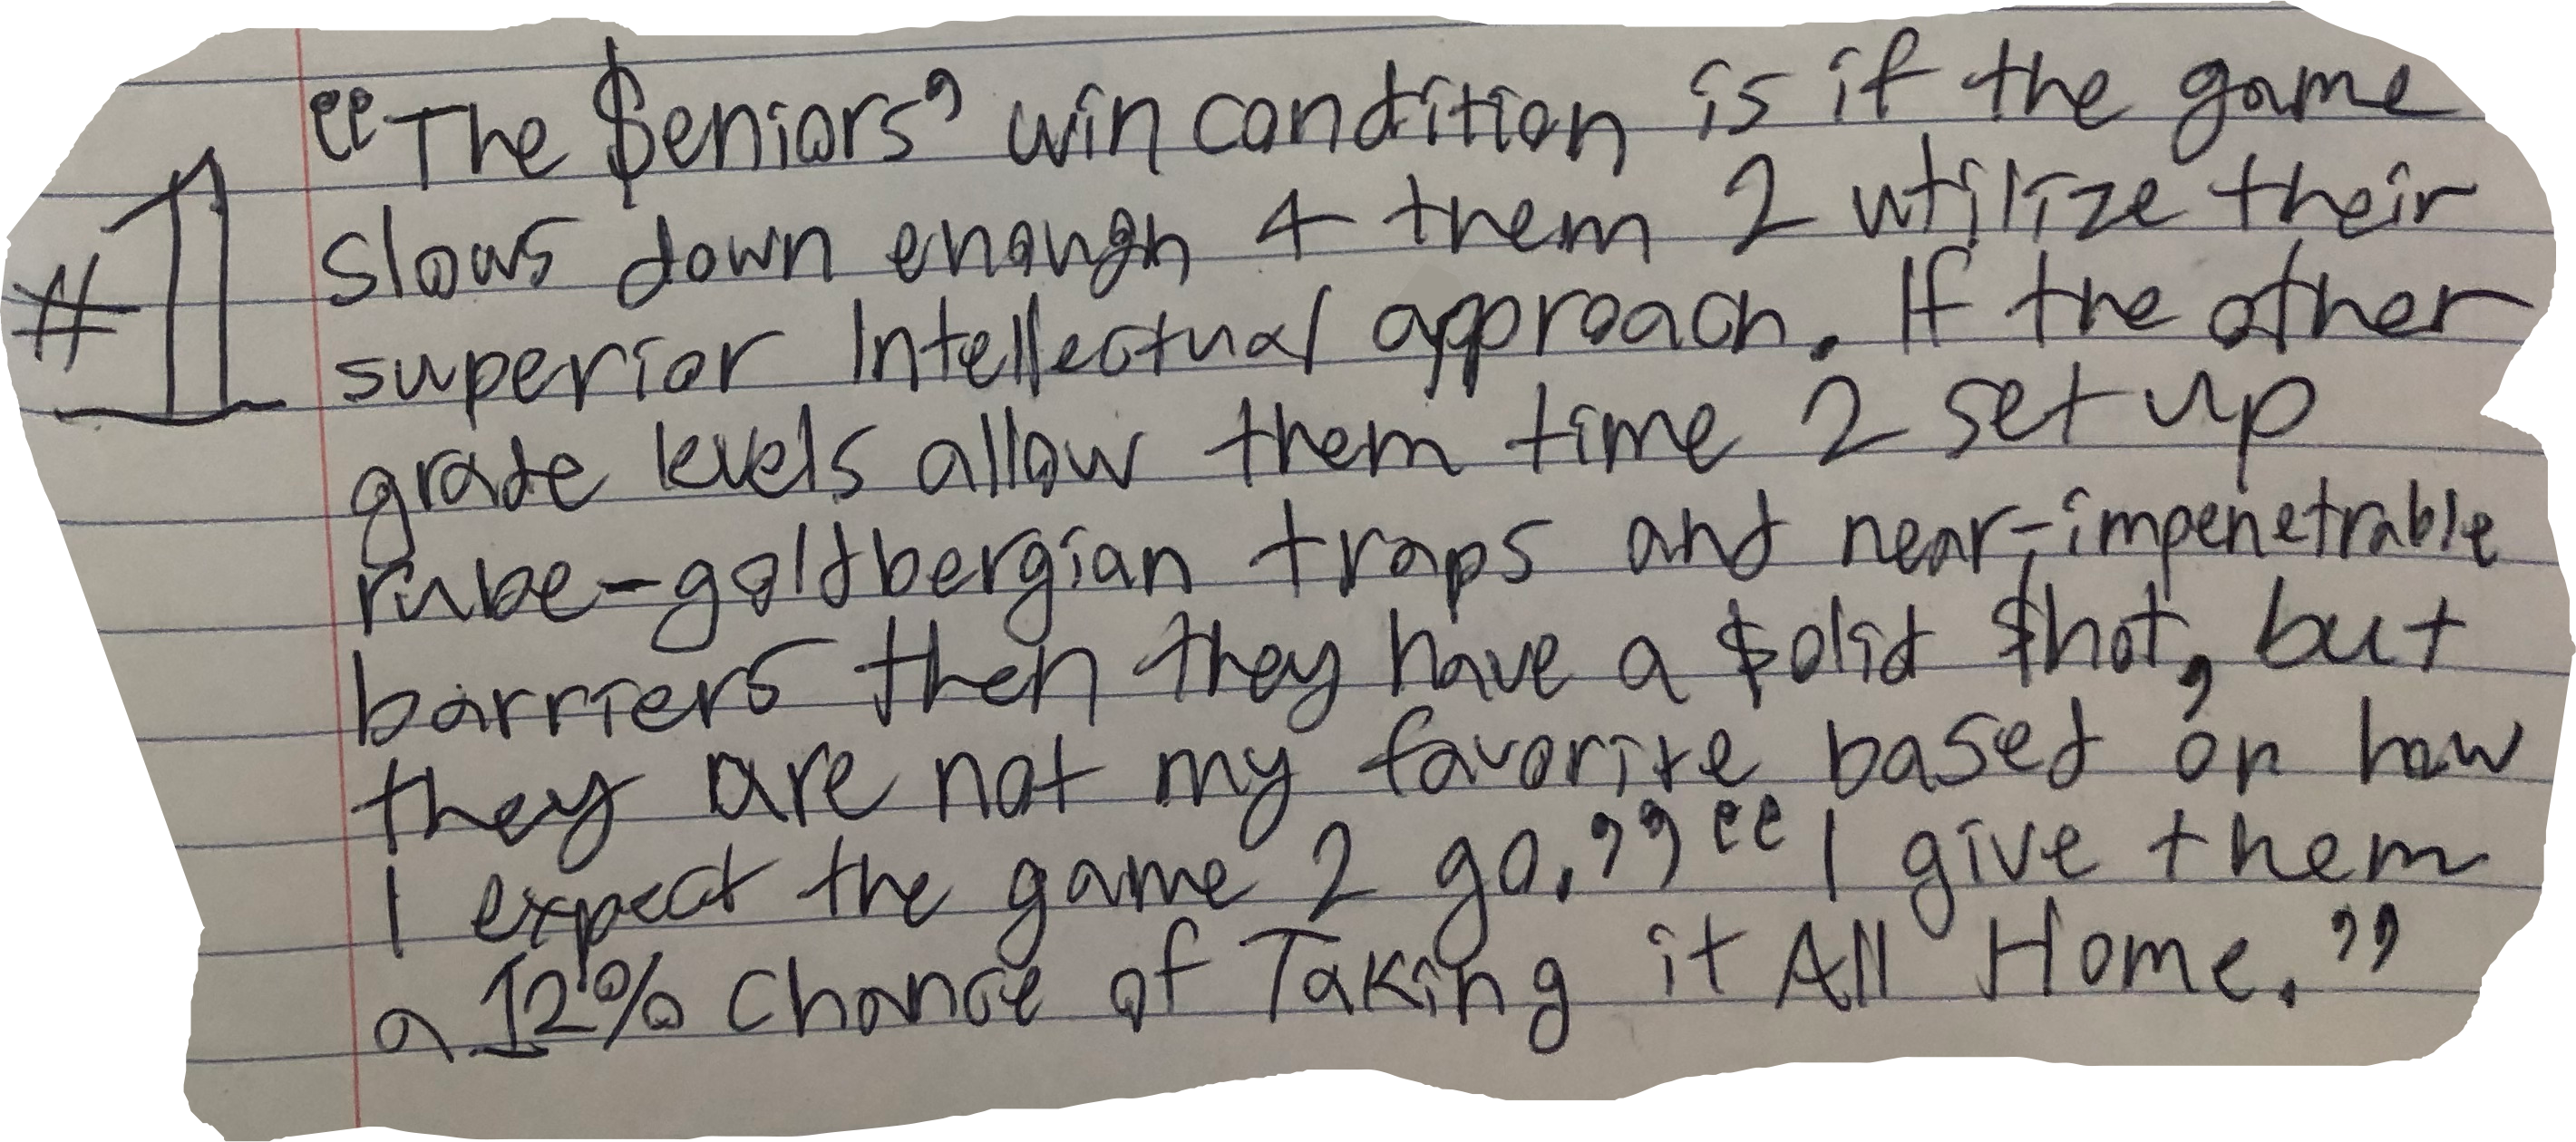 #1
“The $eniors’ win condition is if the game
slows down enough 4 them 2 utilize their
superior Intellectual approach. If the other
grade levels allow them time 2 set up
rube-goldbergian traps and near-impenetrable
barriers then they have a $olid $hot, but
they are not my favorite based on how
I expect the game 2 go.” “I give them
a 12% chance of Taking it All Home.”